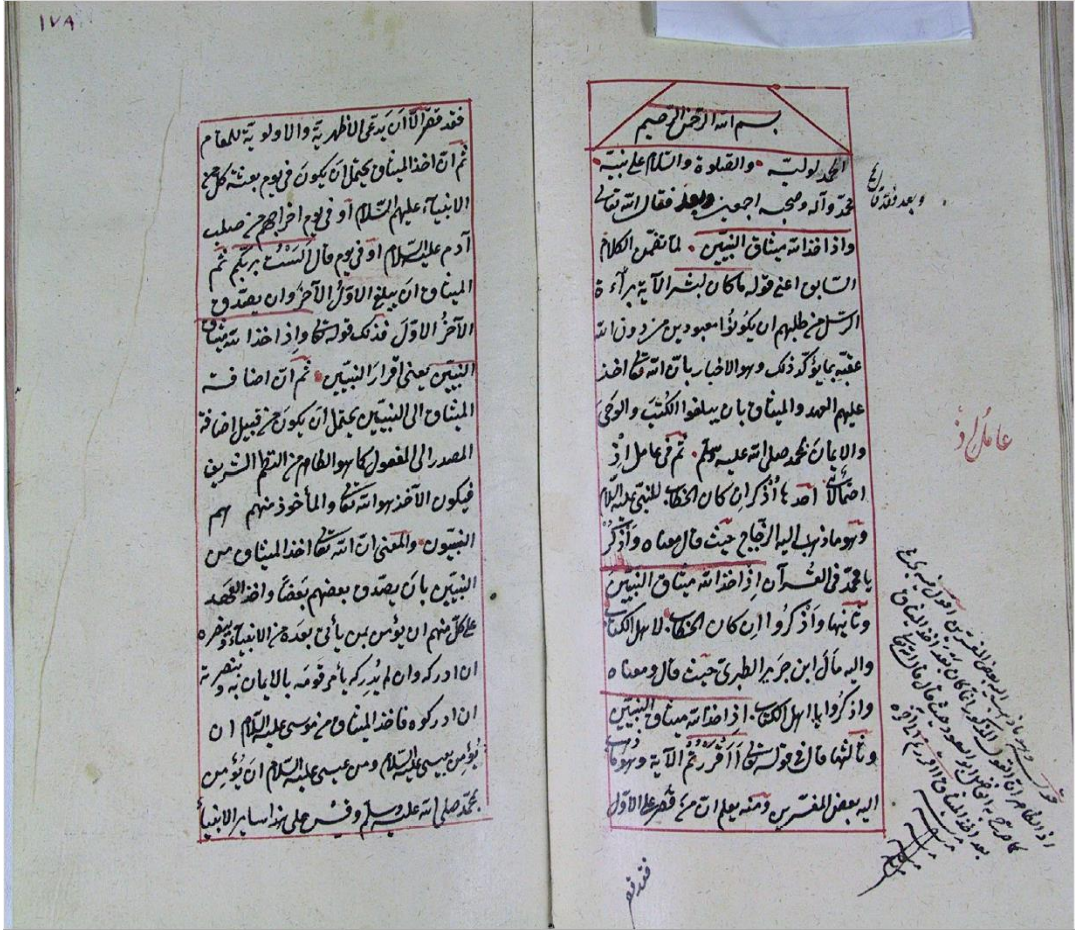 بسم الله الرحمن الرحيم
الحمد لوليه والصلوة والسلام على نبيه
محمد وآله وصحبه اجمعين وبعد فقال الله تعالى
واذ اخذ الله ميثاق النبيين لما تضمن الكلام
السابق اعنى قوله ما كان لبشر الآية براءة
الرسل عن طلبهم ان يكونوا معبودين من دون الله
عقبه بما يؤكد ذلك وهو الاخبار بان الله تعالى اخذ
عليهم العهد والميثاق بان يبلغوا الكتب والوحى
والايمان بمحمد صلى الله عليه وسلم ثم فى عامل اذ
احتمالات احدها اذكر ان كان الخطاب للنبى عليه السلام
وهو ما ذهب اليه الزجاج حيث قال معناه واذكر
يا محمد فى القرآن اذ اخذ الله ميثاق النبيين
وثانيها واذكروا ان كان الخطاب لاهل الكتاب
واليه مال ابن جرير الطبرى حيث قال ومعناه
واذكروا يا اهل الكتاب اذ اخذ الله ميثاق النبيين
وثالثها قال فى قوله تعالى أأقررتم الآية وهو
اليه بعض المفسرين ومنه يعلم ان من قصر على الاول
فقد قصر
عامل اذ
١٧٨
فقد قصر الا ان يدعى الاظهرية والاولوية للمقام
ثم ان اخذ الميثاق يحتمل ان يكون فى يوم بعثة كل من
الانبياء عليهم السلام او فى يوم اخراجهم من صلب
آدم عليه السلام او فى يوم قال الست بربكم ثم
الميثاق ان يبلغ الاول الآخر وان يصدق
الآخر الاول فذلك قوله تعالى واذ اخذ الله ميثاق
النبيين يعنى اقرار النبيين ثم ان اضافة
الميثاق الى النبيين يحتمل ان يكون من قبيل اضافة
المصدر الى المفعول كما هو الظاهر من النظم الشريف
فيكون الآخذ هو الله تعالى والمأخوذ منهم هم
النبيون والمعنى ان الله تعالى اخذ الميثاق من
النبيين بان يصدق بعضهم بعضا واخذ العهد
على كل منهم ان يؤمن بمن يأتى بعده من الانبياء وينصره
ان ادركه وان لم يدركه يأمر قومه بالايمان به وبنصرته
ان ادركوه فاخذ الميثاق من موسى عليه السلام ان
يؤمن بعيسى عليه السلام ومن عيسى عليه السلام ان يؤمن
بمحمد صلى الله عليه وسلم وقس على هذا ساير الانبياء